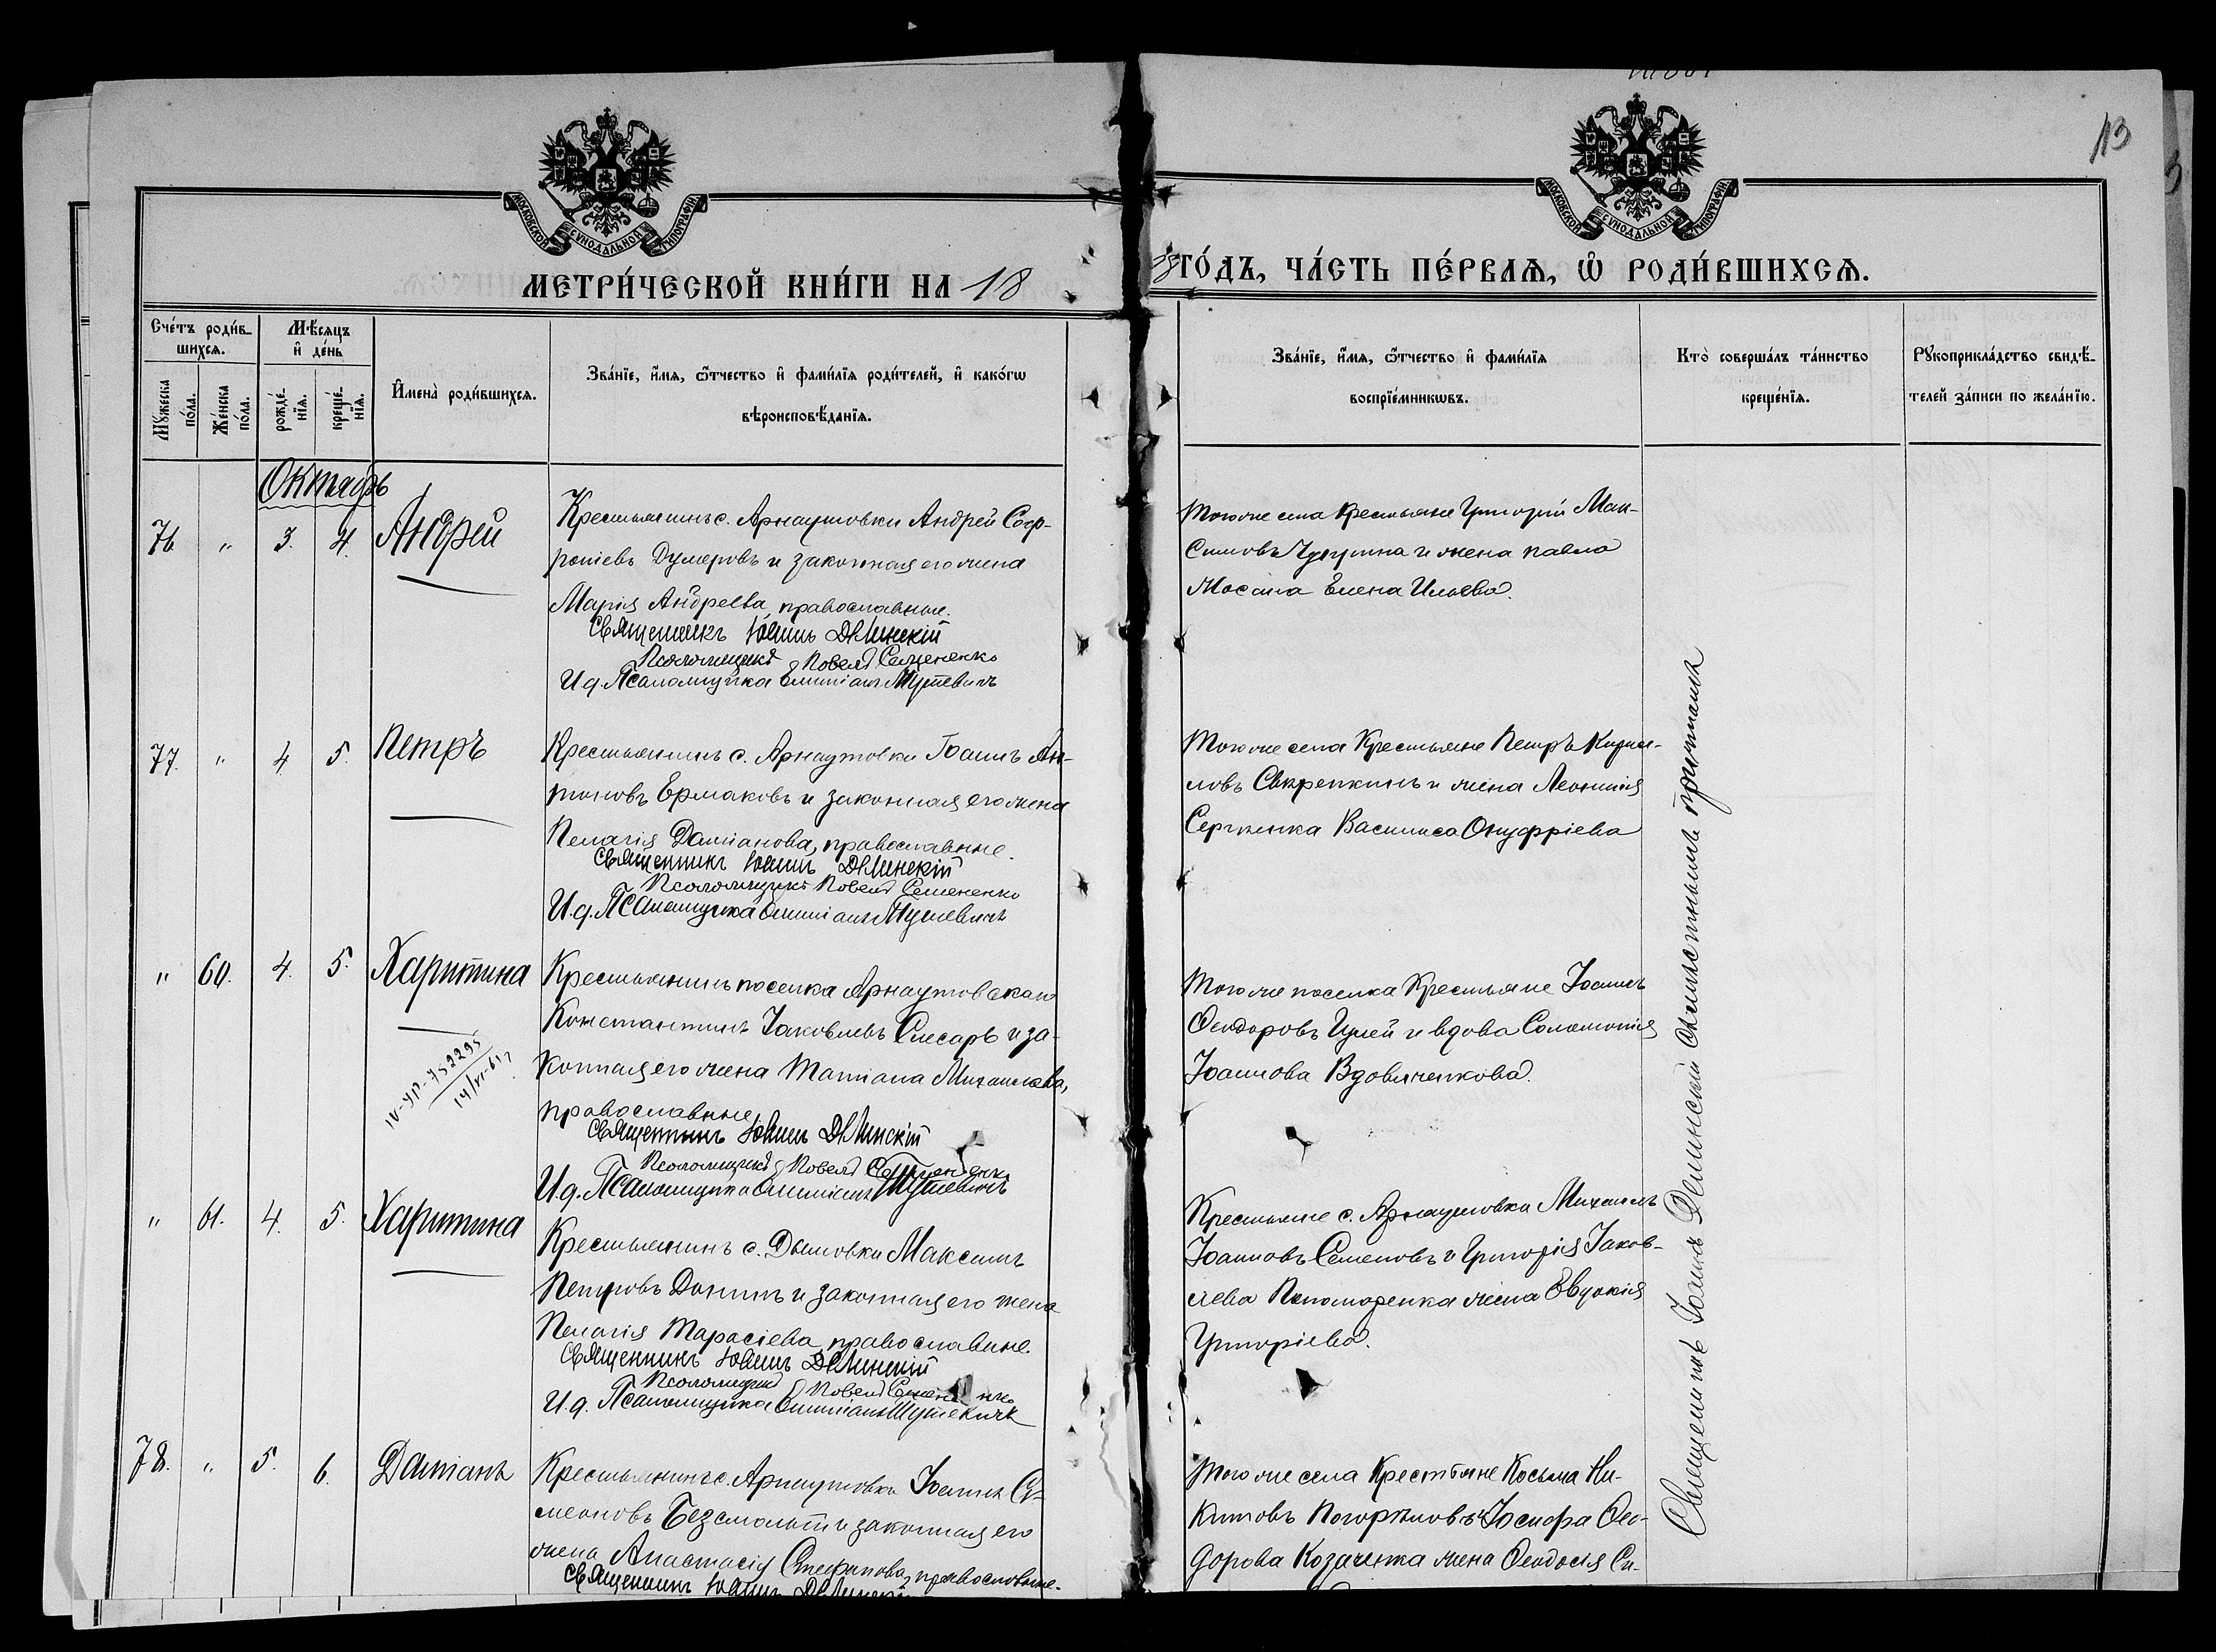 13
МОСКОВСКОЙ СУНОДАЛЬНОЙ ТИПОГРАФІИ
МОСКОВСКОЙ СУНОДАЛЬНОЙ ТИПОГРАФІИ
МЕТРИ́ЧЕСКОЙ КНИ́ГИ НА 18
ГО́ДЪ, ЧА́СТЬ ПЕ́РВАѦ, Ѡ҆ РОДИ́ВШИХСѦ.
Сче́тъ роди́в-
шихсѧ.
Мѣ́сяцъ
и҆ де́нь
Мꙋ́жеска
по́ла.
Же́нска
по́ла.
рожде́-
нїѧ.
креще́-
нїѧ.
И҆мена̀ роди́вшихсѧ.
Зва́нїе, и҆́мѧ, ѻ҆́тчество и҆ фами́лїѧ роди́телей, и҆ како́гѡ
вѣроисповѣ́данїѧ.
Зва́нїе, и҆́мѧ, ѻ҆́тчество и҆ фами́лїѧ
воспрїе́мникѡвъ.
Кто̀ соверша́лъ та́инство
креще́нїѧ.
Рꙋкоприкла́дство свидѣ́-
телей за́писи по жела́нїю.
Октябрь
76 " 3. 4. Андрей
Крестьянинъ с. Арнаутовки Андрей Соф-
роніевъ и законная его жена
Марія Андреева, православные.
Священникъ Іоаннъ Деминскій
Псаломщикъ Павелъ Семененко
И.д. Псаломщика
Того же села Крестьяне Григорій Мак-
симовъ и жена Павла
Елена Ильева.
77. " 4. 5. Петръ
Крестьянинъ с. Арнаутовки Іоаннъ Ан-
тоновъ Ермаковъ и законная его жена
Пелагія Даміанова, православные.
Священникъ Іоаннъ Деминскій
Псаломщикъ Павелъ Семененко
И.д. Псаломщика
Того же села Крестьяне Петръ Кирил-
ловъ Скрепкинъ и жена Леонтія
Сергіенка Василиса Онуфріева
" 60. 4. 5. Харитина
IV-УР-752295
Крестьянинъ поселка Арнаутовскаго
Константинъ Іаковлевъ Слесарь и за-
конная его жена Татіана Михаилова,
православные
Священникъ Іоаннъ Деминскій
Псаломщикъ Павелъ Семененко
И.д. Псаломщика
Того же поселка Крестьяне Іоаннъ
Ѳеодоровъ и вдова Соломонія
Іоаннова Вдовиченкова.
" 61. 4. 5. Харитина
Крестьянинъ с. Дымовки Максимъ
Петровъ Донинъ и законная его жена
Пелагія Тарасіева, православные.
Священникъ Іоаннъ Деминскій
Псаломщикъ Павелъ Семененко
И.д. Псаломщика
Крестьяне с. Арнаутовки Михаилъ
Іоанновъ Семеновъ и Григорія Іаков-
лева Пономаренка жена Евдокія
Григоріева.
78. " 5. 6. Даміанъ
Крестьянинъ с. Арнаутовки Іоаннъ Си-
меоновъ и законная его
жена Анастасія Стефанова, православные.
Священникъ Іоаннъ Деминскій
Того же села Крестьяне Косьма Ни-
китовъ Погорѣловъ и Іосифа Ѳео-
дорова Козаченка жена Ѳеодосія Си-
Священникъ Іоаннъ Деминскій съ мѣстнымъ причтомъ